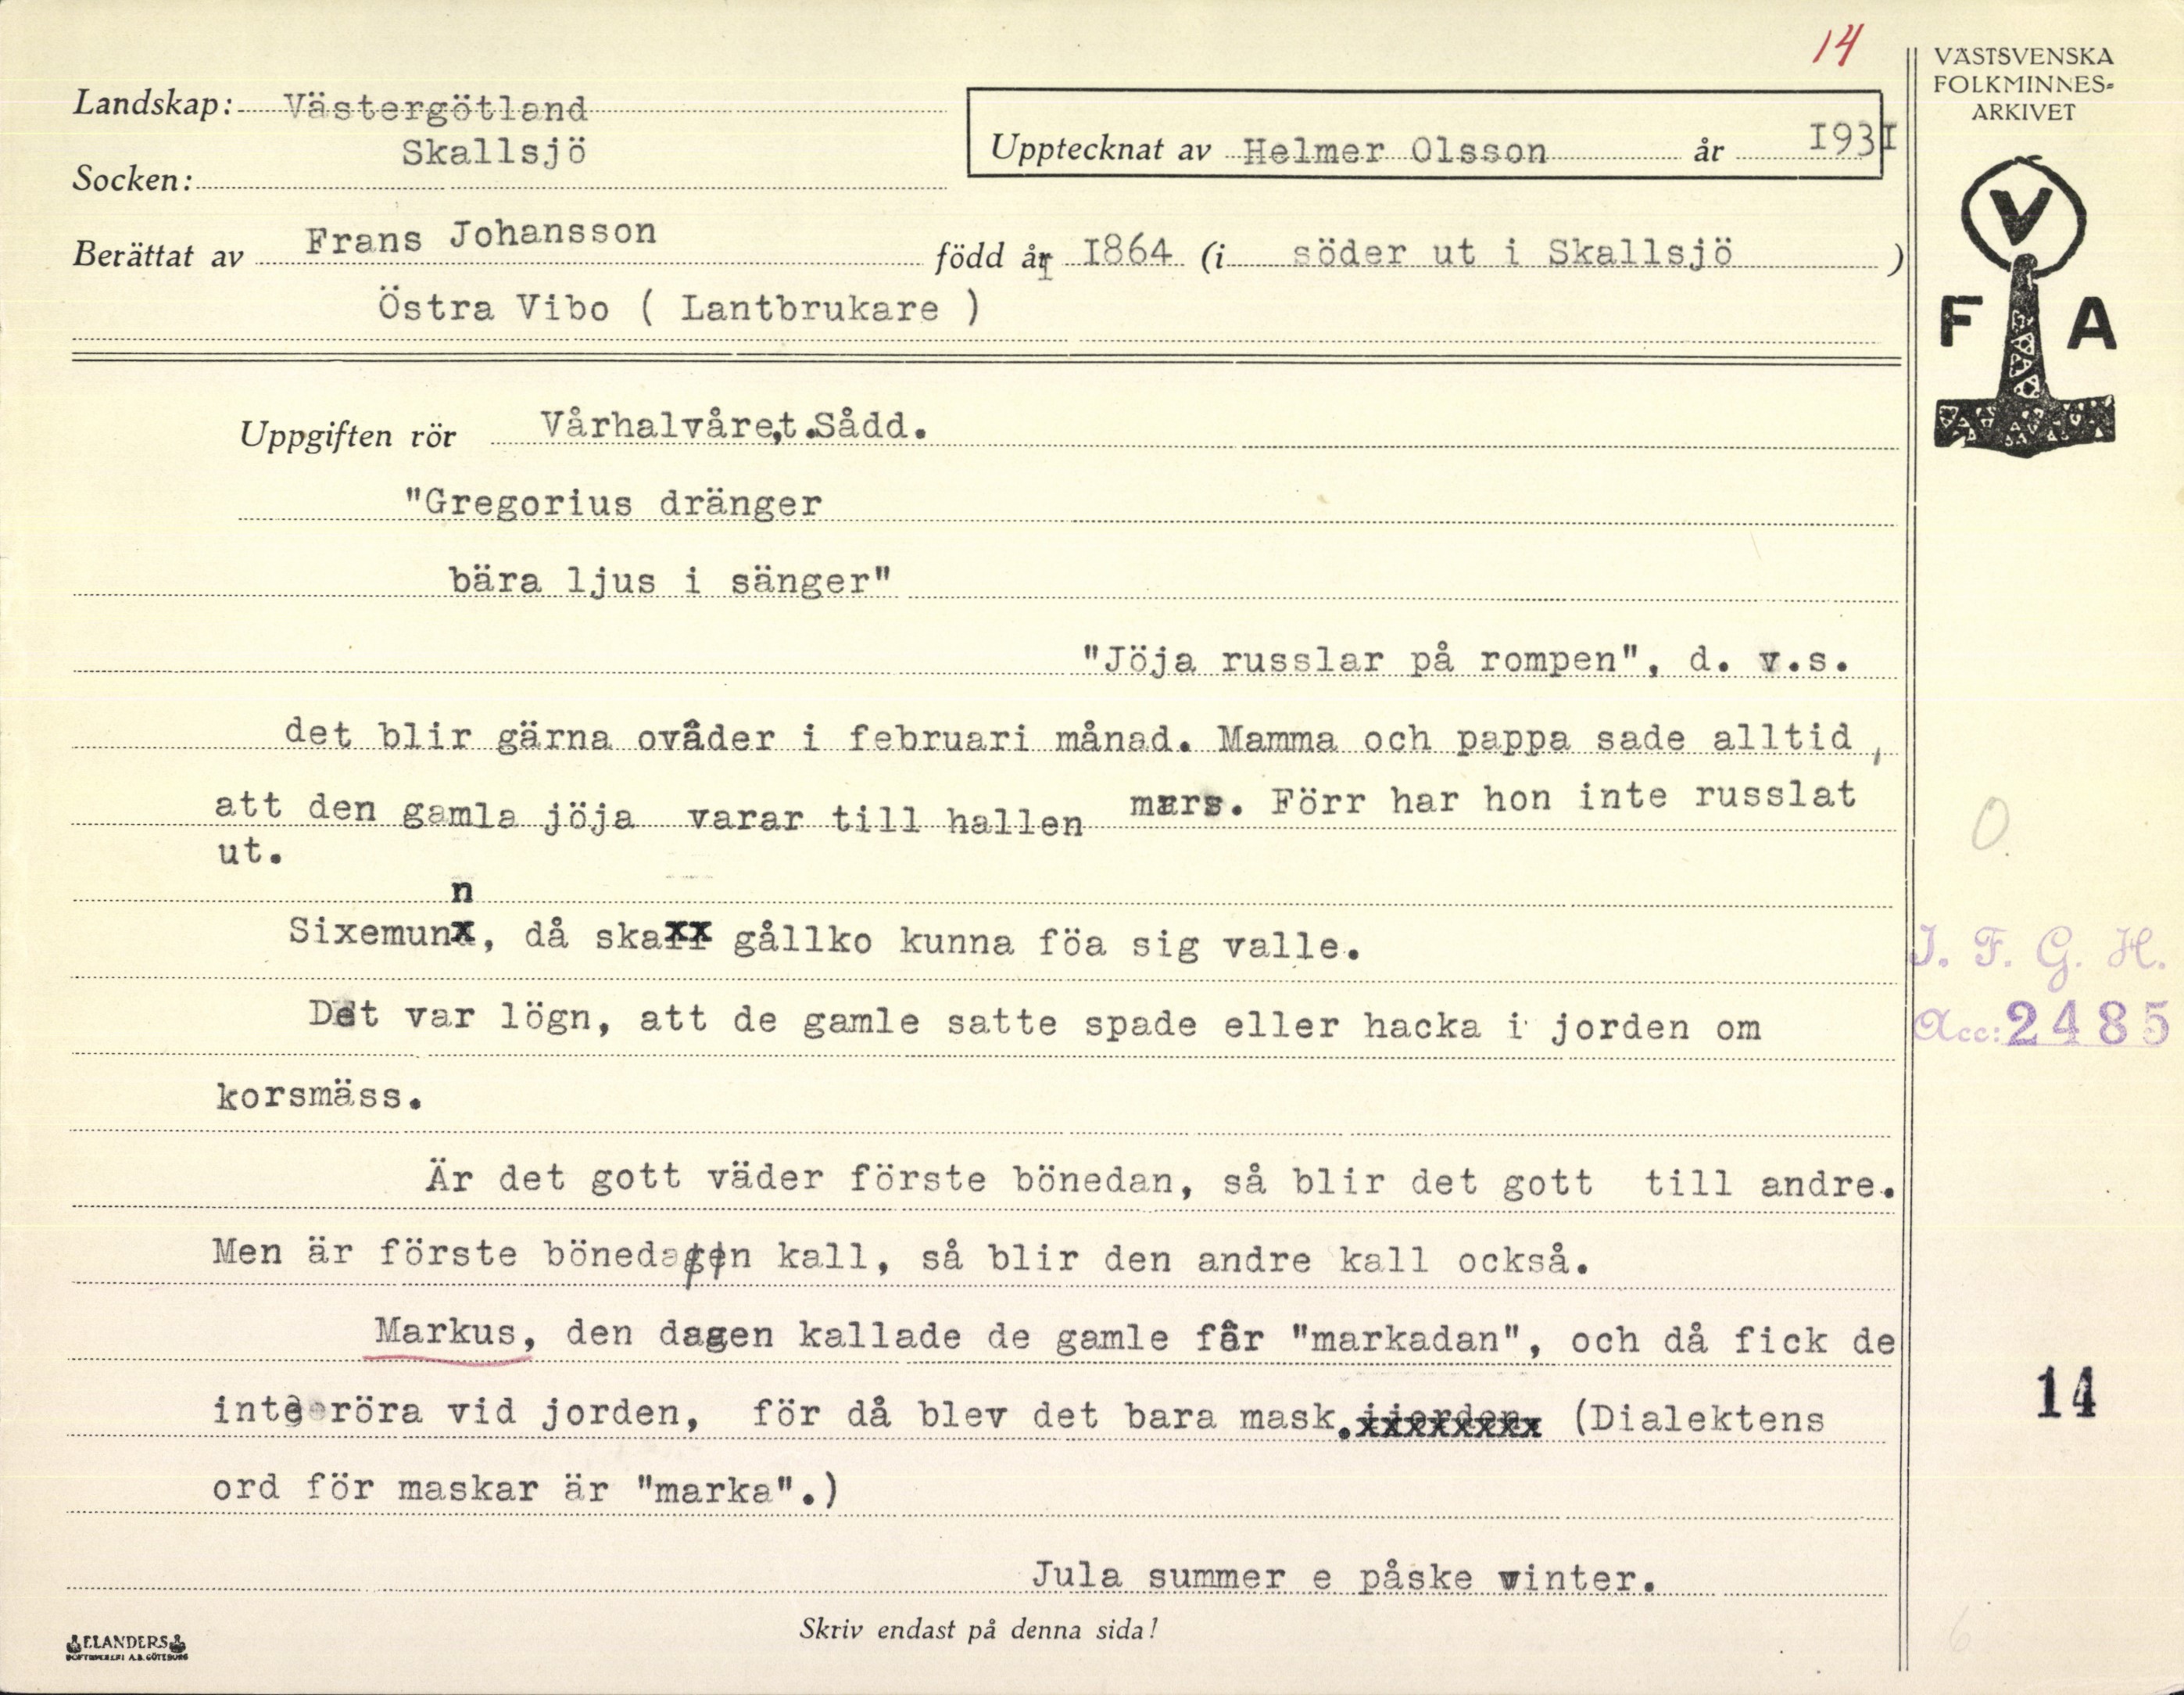 14
VÄSTSVENSKA
FOLKMINNES-
ARKIVET
Landskap: Västergötland
Upptecknat av Helmer Olsson år 1931
Socken: Skallsjö
Berättat av Frans Johansson född år 1864 (i söder ut i Skallsjö )
Östra Vibo ( Lantbrukare )
V
F A
Uppgiften rör Vårhalvåret. Sådd.
"Gregorius dränger
bära ljus i sänger"
"Jöja russlar på rompen", d. v.s.
det blir gärna oväder i februari månad. Mamma och pappa sade alltid,
att den gamla jöja varar till hallen mars. Förr har hon inte russlat
ut.
Sixemunn, då ska gållko kunna föa sig valle.
Det var lögn, att de gamle satte spade eller hacka i jorden om
korsmäss.
Är det gott väder förste bönedan, så blir det gott till andre.
Men är förste bönedagen kall, så blir den andre kall också.
Markus, den dagen kallade de gamle får "markadan", och då fick de
inte röra vid jorden, för då blev det bara mask. (Dialektens
ord för maskar är "marka".)
Jula summer e påske winter.
O.
I. F. G. H.
Acc: 2485
14
Skriv endast på denna sida!
ELANDERS
BOKTRYCKERI A.B. GÖTEBORG
6